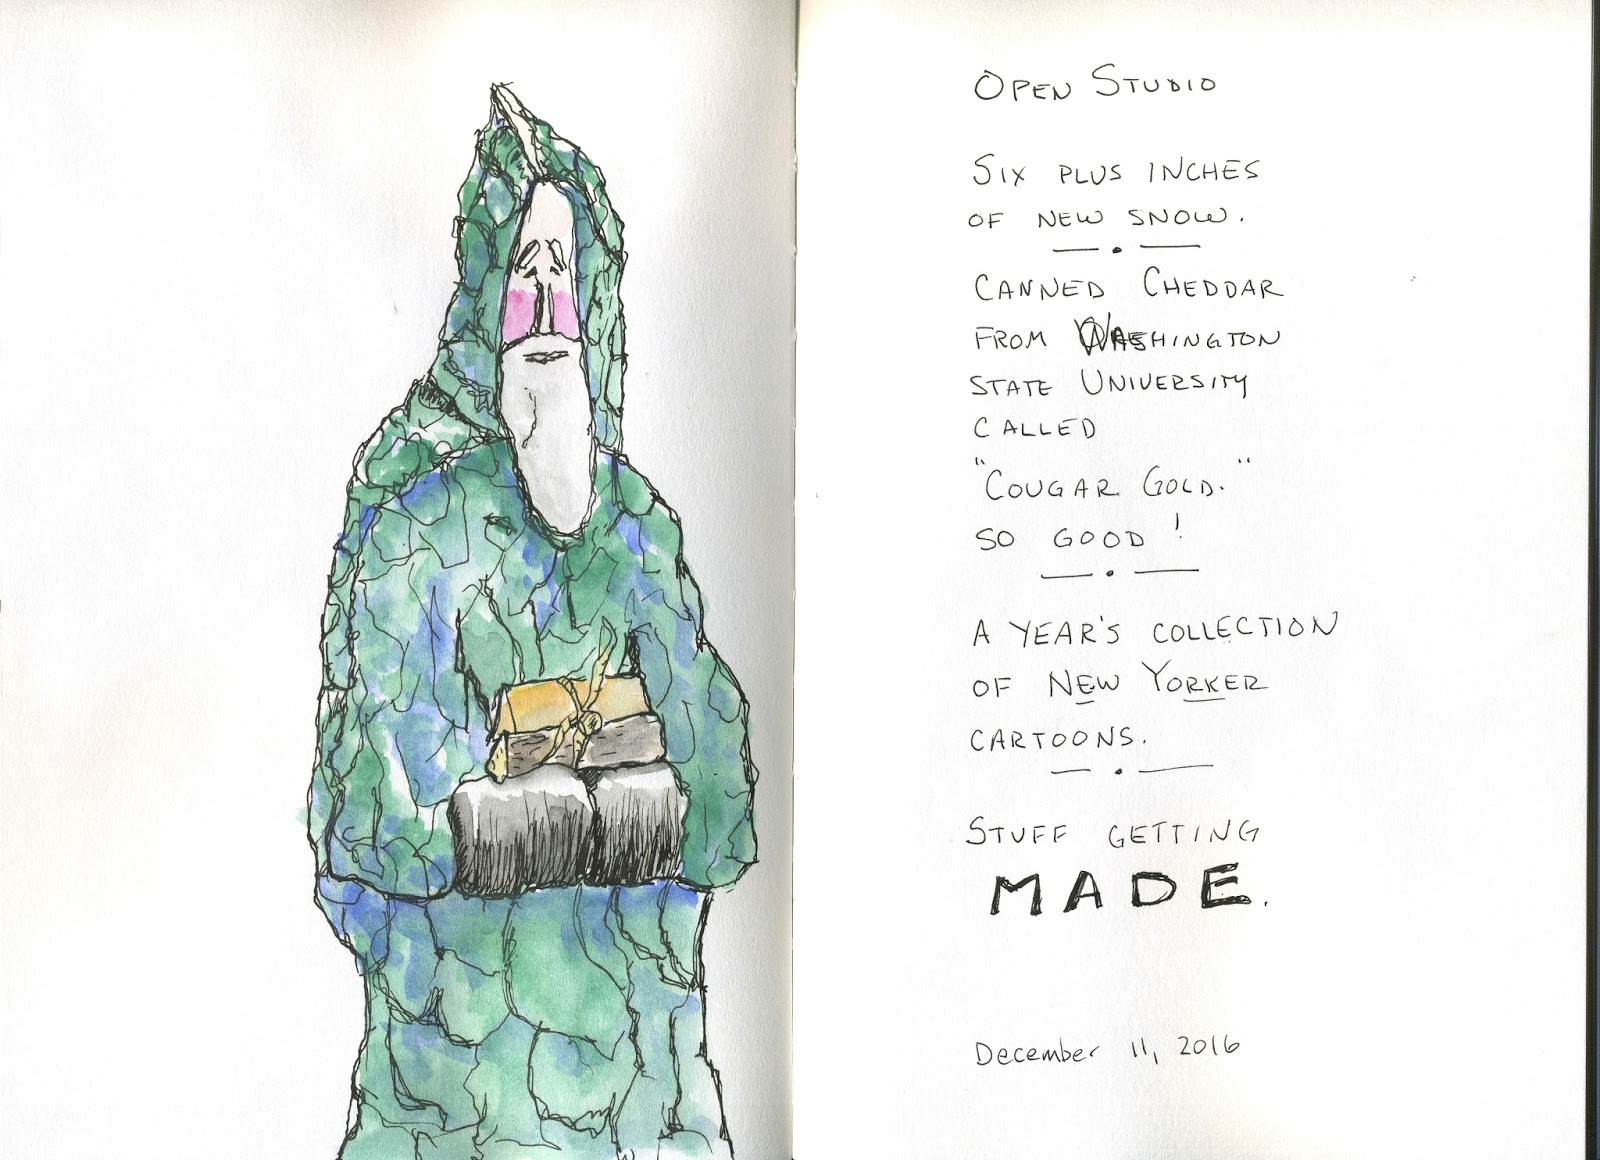 Open Studio
Six plus inches
of new snow.
Canned Cheddar
from Washington
state University
called
"Cougar Gold."
so good!
A year's collection
of New Yorker
cartoons.
Stuff getting
MADE.
December 11, 2016